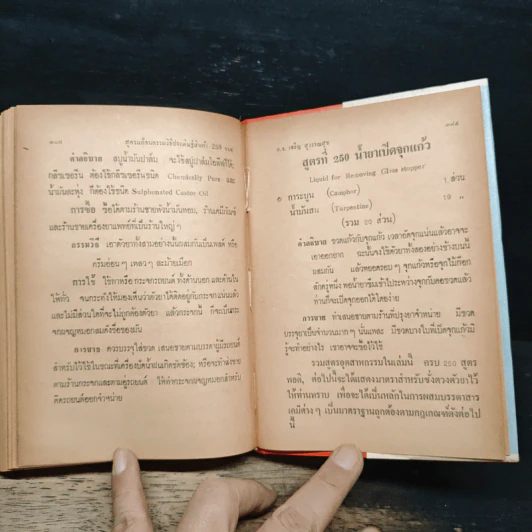 สูตรผลิตกรรมวิธีประดิษฐ์สินค้า 250 แบบ
คำอธิบาย สบู่น้ำมันปาล์ม จะใช้สบู่ปาล์มโอลีฟก็ได้
กลีเซอรีน ต้องใช้กลีเซอรีนชนิด Chemically Pure และ
น้ำมันละหุ่ง ก็ต้องใช้ชนิด Sulphonated Castor Oil
การซื้อ ซื้อได้ตามร้านขายหัวน้ำมันหอม, ร้านเคมีภัณฑ์
และร้านขายเครื่องยาแพทย์ที่เป็นร้านใหญ่ ๆ
กรรมวิธี เอาตัวยาทั้งสามอย่างนั้นผสมกันเป็นเพสต์ หรือ
ครีมอ่อน ๆ เหลว ๆ
การใช้ ใช้ทาหรือ กระจกรถยนต์ ทั้งด้านนอก และด้านใน
ให้ทั่ว จนกระทั่งให้มองเห็นว่าตัวยาได้ติดอยู่กับกระจกแน่นแล้ว
และไม่มีส่วนใดที่จะไม่ถูกต้องตัวยา แล้วกระจกนั้น ก็จะเป็นกระ
จกผจญหมอกแสดงร้อยของมัน
การขาย ควรบรรจุใส่ขวด เสนอขายตามบรรดาผู้มีรถยนต์
สำหรับไว้ใช้ในขณะที่เครื่องปัดน้ำฝนเกิดขัดข้อง; หรือจะทำส่งขาย
ตามร้านกระจกและตามอู่รถยนต์ ให้ทำกระจกผจญหมอกสำหรับ
ติดรถยนต์ออกจำหน่าย
อ.จ. เจริญ
สูตรที่ 250 น้ำยาเปิดจุกแก้ว
Liquid for Removing Glass stopper
๑ การะบูน (Camphor) 1 ส่วน
น้ำมันสน (Turpentine) 19 "
(รวม 20 ส่วน)
คำอธิบาย ขวดแก้วกับจุกแก้ว เวลาอัดจุกแน่นแล้วอาจจะ
เอาออกยาก ฉะนั้นจงใช้ตัวยาทั้งสองอย่างข้างบนนี้
ผสมกัน แล้วหยอดรอบ ๆ จุกแก้วหรือจุกไม้ก๊อก
สักครู่หนึ่ง พอน้ำยาซึมเข้าไประหว่างจุกกับคอขวดแล้ว
ท่านก็จะเปิดจุกออกได้โดยง่าย
การขาย ทำเสนอขายตามร้านที่ปรุงยาจำหน่าย มีขวด
บรรจุยาเป็นจำนวนมาก ๆ นั่นแหละ มีขวดบางใบที่เปิดจุกแก้วไม่
รู้จะทำอย่างไร เขาอาจจะซื้อไว้ใช้
รวมสูตรอุตสาหกรรมในเล่มนี้ ครบ 250 สูตร
พอดี, ต่อไปนี้จะได้แสดงมาตราสำหรับชั่งตวงตัวยาไว้
ให้ท่านทราบ เพื่อจะได้เป็นหลักในการผสมบรรดาสาร
เคมีต่าง ๆ เป็นมาตราฐานถูกต้องตามกฎเกณฑ์ดังต่อไป
นี้